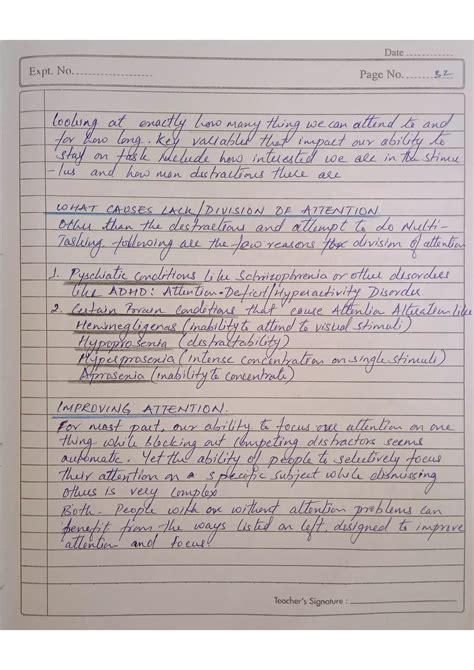 Date
Expt. No.
Page No. 32
looking at exactly how many thing we can attend to and
for how long. Key variables that impact our ability to
stay on task include how interested we are in the stimu
-lus and how man distractions there are
WHAT CAUSES LACK/DIVISION OF ATTENTION
Other than the distractions and attempt to do Multi-
Tasking following are the few reasons for division of attention
1. Pyschiatic Conditions like Schizophrenia or other disorders
like ADHD: Attention-Deficit/Hyperactivity Disorder
2. Certain Brain Conditions that cause Attention Alteration like
Heminegligenas (inability to attend to visual stimuli)
Hypoprosenia (distractability)
Hyperprosenia (intense concentration on single stimuli)
Aprosenia (inability to concentrate)
IMPROVING ATTENTION.
For most part, our ability to focus our attention on one
thing while blocking out competing distractors seems
automatic. Yet the ability of people to selectively focus
their attention on a specific subject while dismissing
others is very complex
Both. People with or without attention problems can
benefit from the ways listed on left, designed to improve
attention and focus
Teacher's Signature :